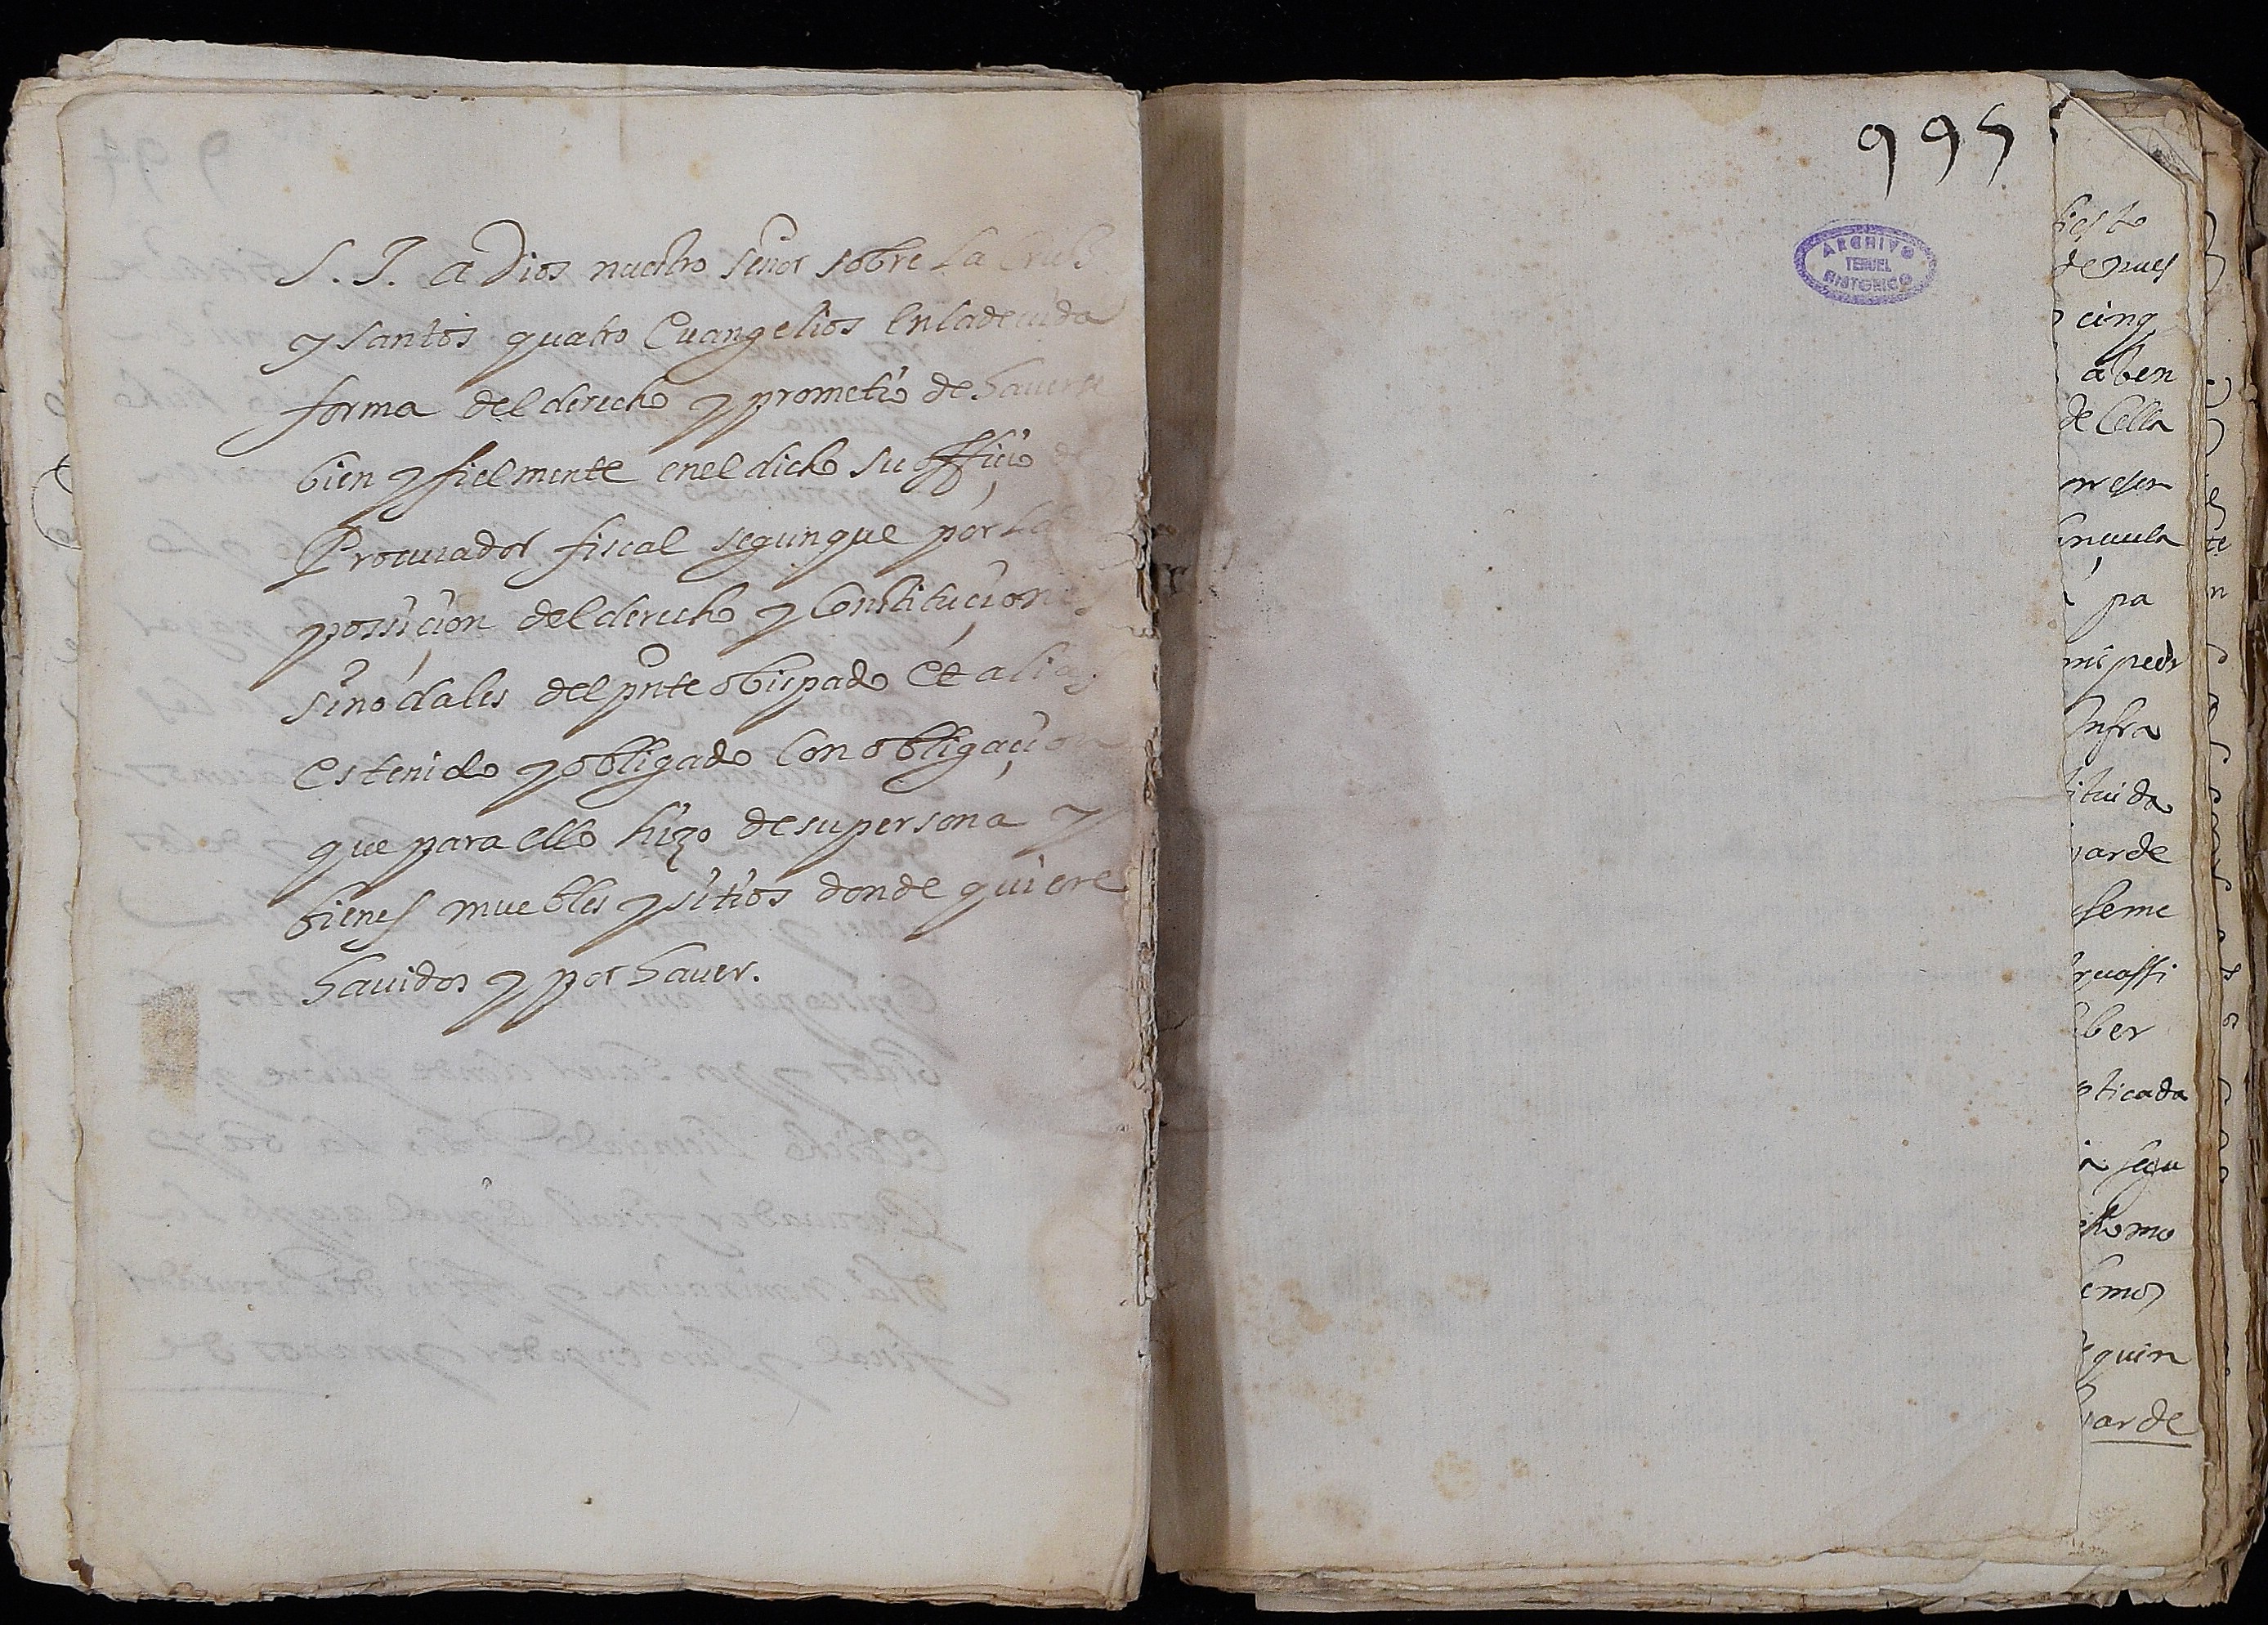 S. J. a Dios nuestro señor sobre la Cruz
y santos quatro Euangelios en la deuida
forma del derecho y prometio de hauerse
bien y fielmente en el dicho su officio de
Procurador fiscal segun que por
posicion del derecho y Constituciones
sinodales del pnte obispado et alias
es tenido y obligado con obligacion
que para ello hizo de su persona y
bienes muebles y sitios donde quiere
hauidos y por hauer.
995
ARCHIVO
TERUEL
HISTORICO
de pues
cinq
aben
de Cella
pa
mi pedr
Infra
tituida
arde
seme
ber
pticada
segu
homo
emos
quin
arde